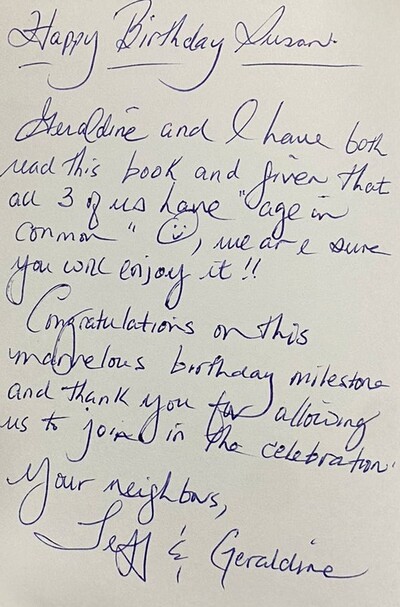 Happy Birthday Susan.
Geraldine and I have both
read this book and given that
all 3 of us have "age in
common" ☺, we are sure
you will enjoy it!!
Congratulations on this
marvelous birthday milestone
and thank you for allowing
us to join in the celebration.
Your neighbors,
Jeff & Geraldine